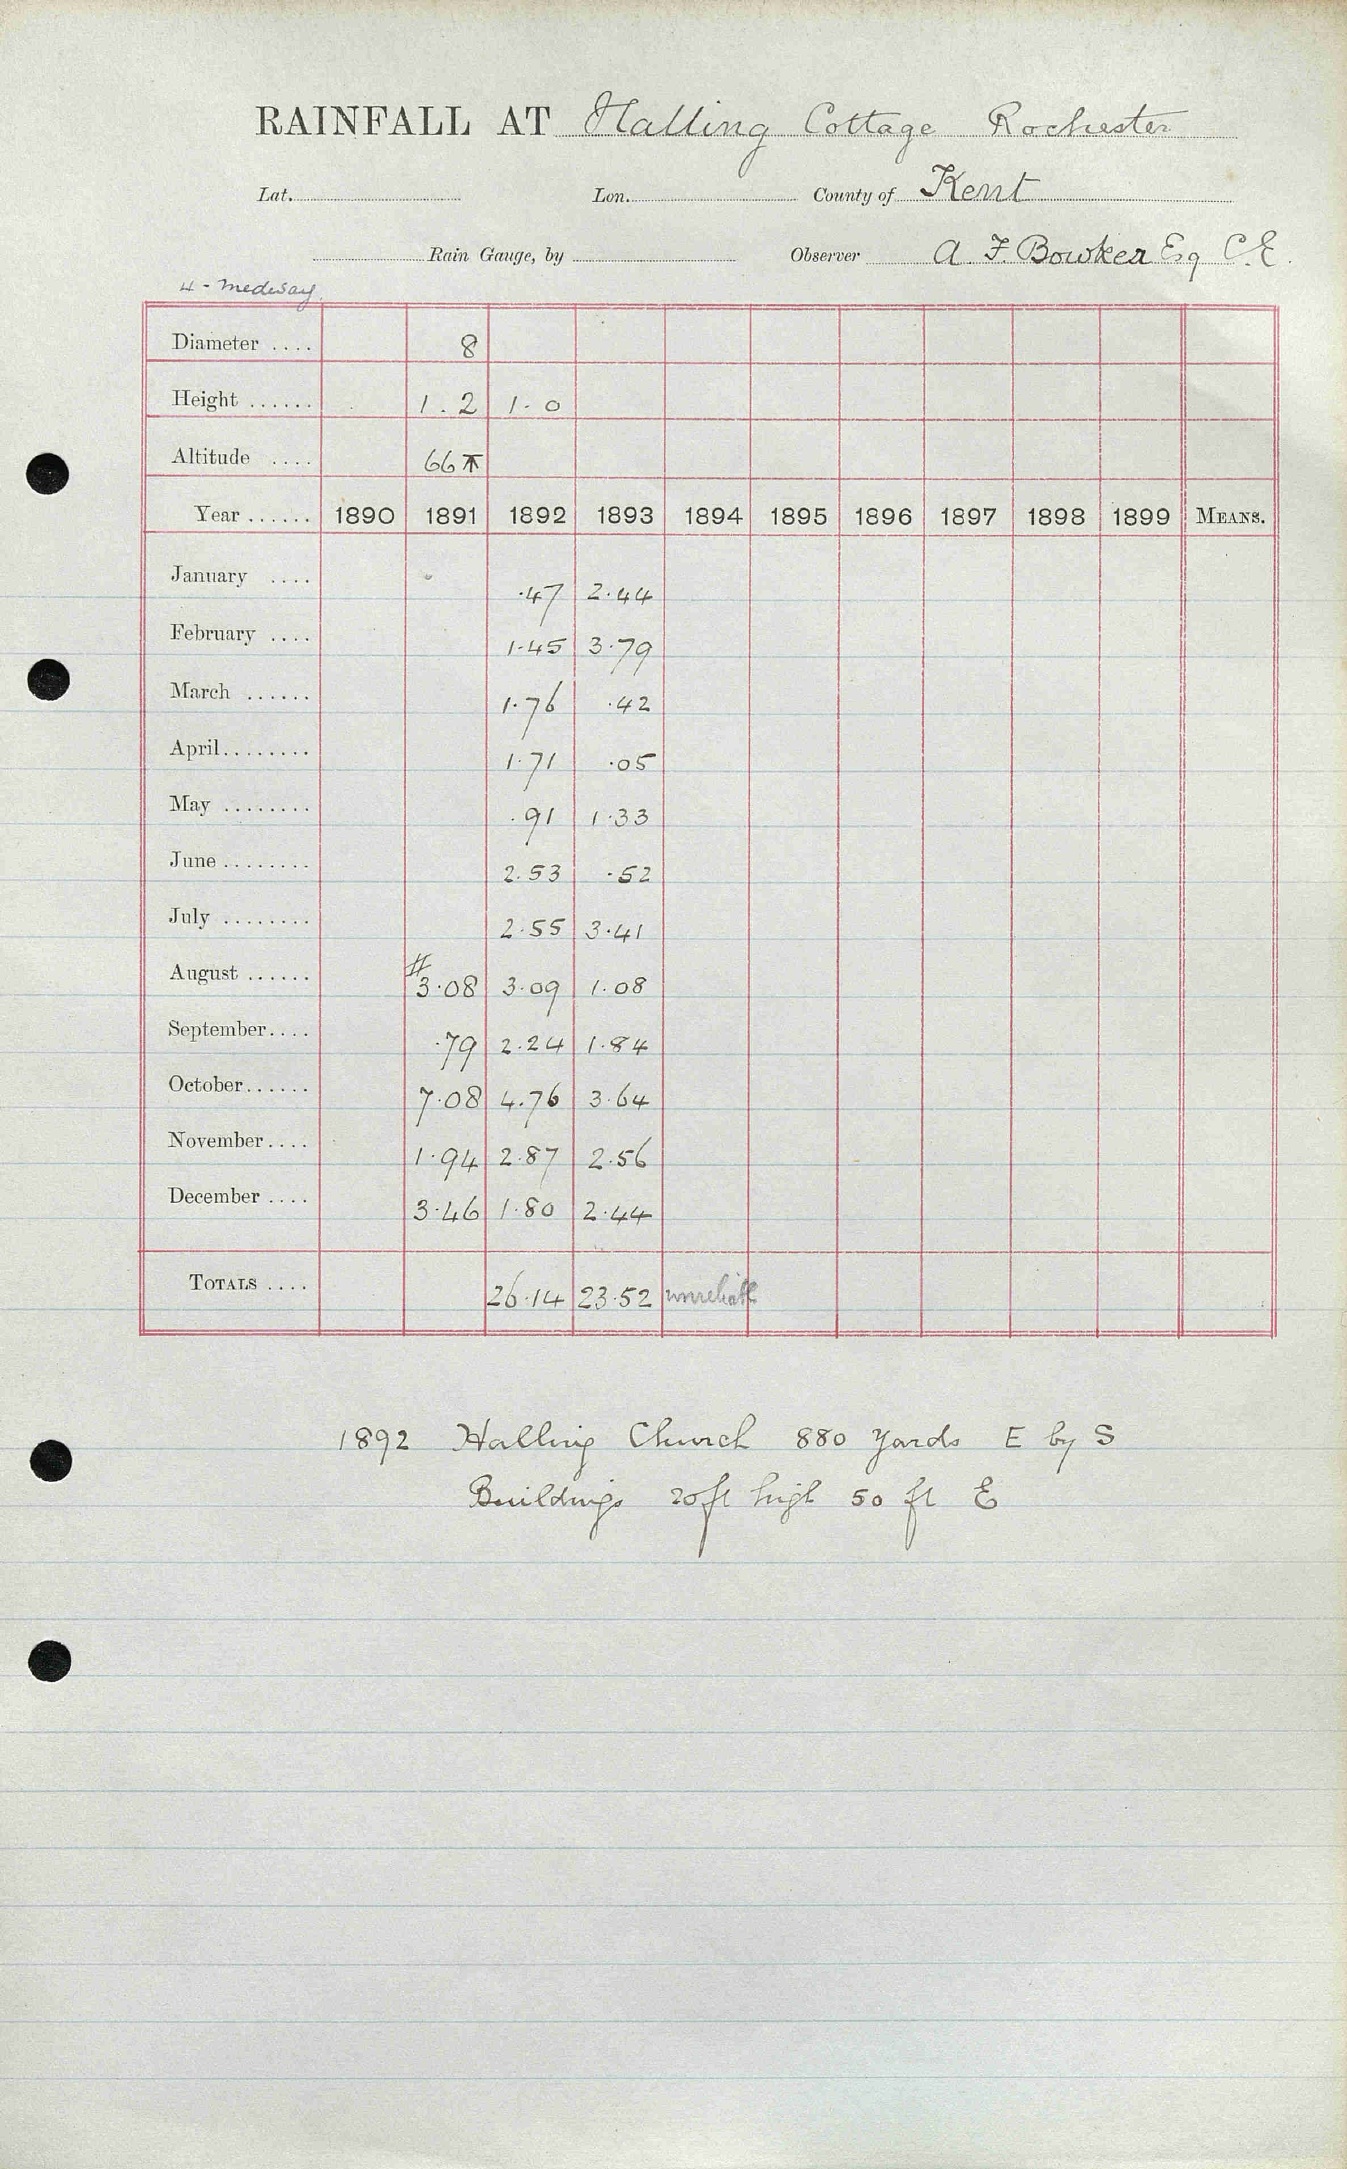 RAINFALL AT Halling Cottage Rochester
Lat. Lon. County of Kent
Rain Gauge, by Observer A. F. Bowker Esq C.E.
4 - Medway
Diameter .... 8
Height ...... 1.2 1.0
Altitude .... 66
Year ...... 1890 1891 1892 1893 1894 1895 1896 1897 1898 1899 MEANS.
January .... .47 2.44
February .... 1.45 3.79
March ...... 1.76 .42
April........ 1.71 .05
May ........ .91 1.33
June ........ 2.53 .52
July ........ 2.55 3.41
August ...... # 3.08 3.09 1.08
September.... .79 2.24 1.84
October...... 7.08 4.76 3.64
November.... 1.94 2.87 2.56
December .... 3.46 1.80 2.44
TOTALS .... 26.14 23.52 unreliable
1892 Halling Church 880 yards E by S
Buildings 20ft high 50 ft E